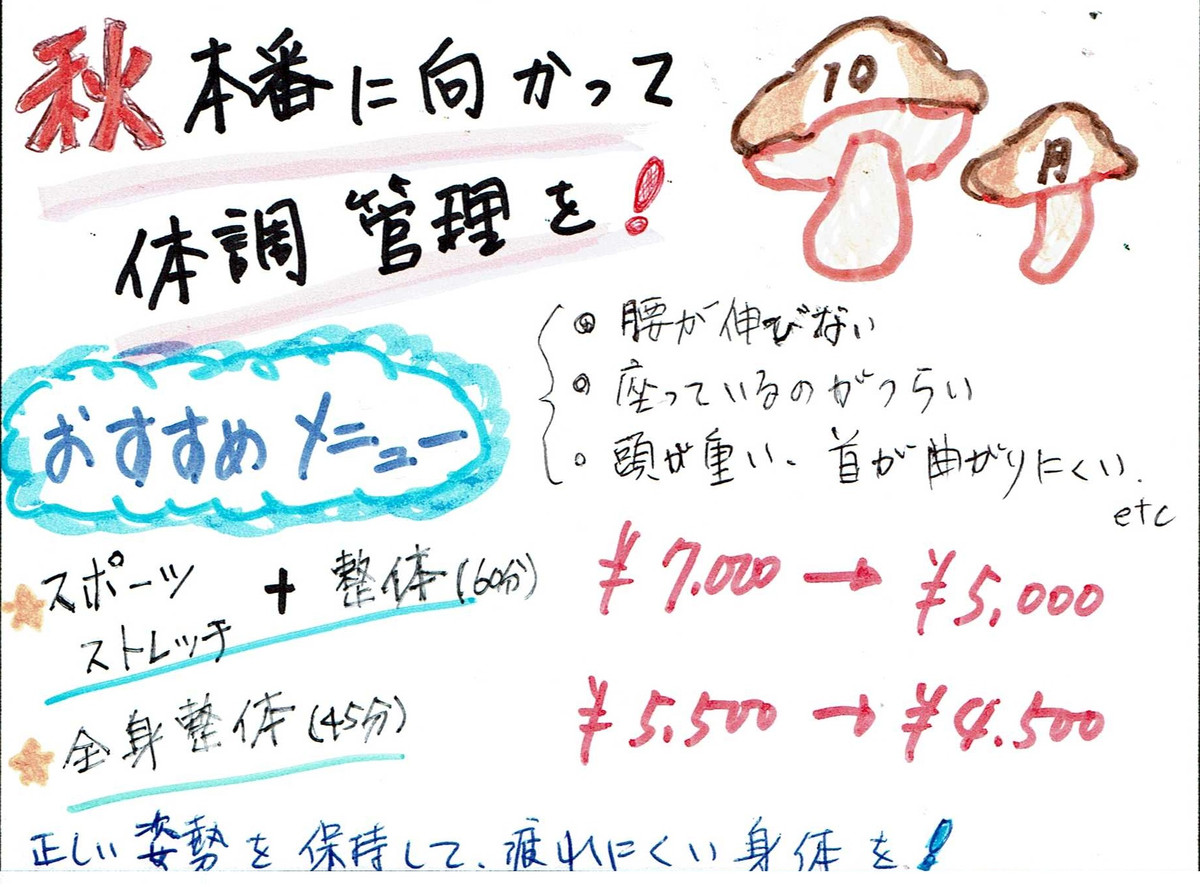 秋本番に向かって
体調管理を!
10
月
・腰が伸びない
・座っているのがつらい
・頭が重い、首が曲がりにくい.
etc
おすすめメニュー
スポーツ
ストレッチ + 整体(60分) ¥7.000 → ¥5,000
全身整体(45分) ¥5,500 → ¥4.500
正しい姿勢を保持して、疲れにくい身体を!